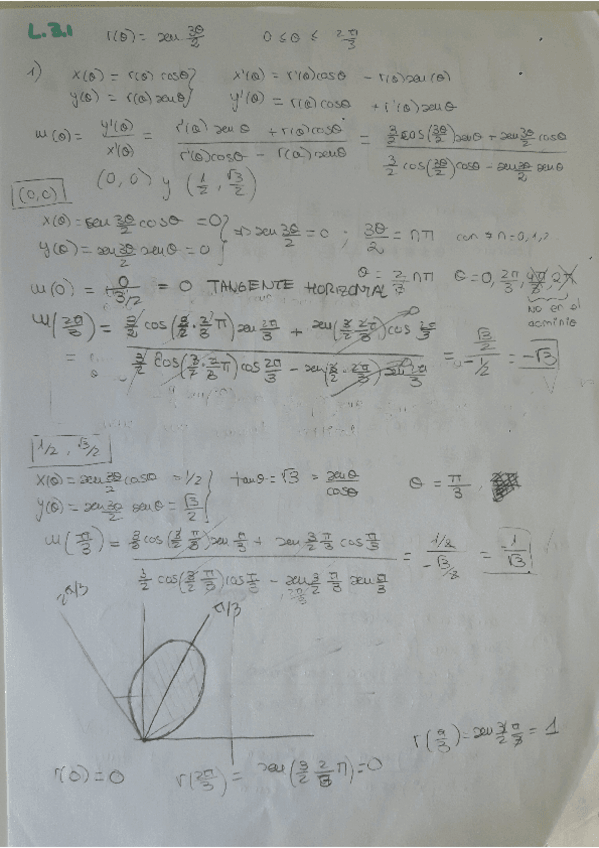 L.3.1 r(θ) = sen 3θ/2 0 ≤ θ ≤ 2π/3
1) x(θ) = r(θ) cosθ } x'(θ) = r'(θ)cosθ - r(θ)sen(θ)
y(θ) = r(θ) senθ } y'(θ) = r(θ)cosθ + r'(θ)senθ
m(θ) = y'(θ)/x'(θ) = (r'(θ) senθ + r(θ)cosθ)/(r'(θ)cosθ - r(θ)senθ) = (3/2 cos(3θ/2)senθ + sen 3θ/2 cosθ)/(3/2 cos(3θ/2)cosθ - sen 3θ/2 senθ)
(0,0) y (1/2, √3/2)
(0,0)
x(θ) = sen 3θ/2 cosθ = 0 } => sen 3θ/2 = 0 ; 3θ/2 = nπ con n=0,1,2
y(θ) = sen 3θ/2 senθ = 0
θ = 2/3 nπ θ = 0, 2π/3, 4π/3, 2π
m(0) = 0/(3/2) = 0 TANGENTE HORIZONTAL
NO en el dominio
m(2π/3) = (3/2 cos(3/2·2/3π) sen 2π/3 + sen(3/2 2π/3)cos 2π/3)/(3/2 cos(3/2·2/3π)cos 2π/3 - sen(3/2·2π/3) sen 2π/3) = (√3/2)/(-1/2) = -√3
1/2, √3/2
x(θ) = sen 3θ/2 cosθ = 1/2 } tanθ = √3 = senθ/cosθ θ = π/3,
y(θ) = sen 3θ/2 senθ = √3/2
m(π/3) = (3/2 cos(3/2 π/3)sen π/3 + sen 3/2 π/3 cos π/3)/(3/2 cos(3/2 π/3)cos π/3 - sen 3/2 π/3 sen π/3) = (1/2)/(-√3/2) = 1/√3
2π/3 π/3
r(π/3) = sen 3/2 π/3 = 1
r(0) = 0 r(2π/3) = sen(3/2 2/3 π) = 0